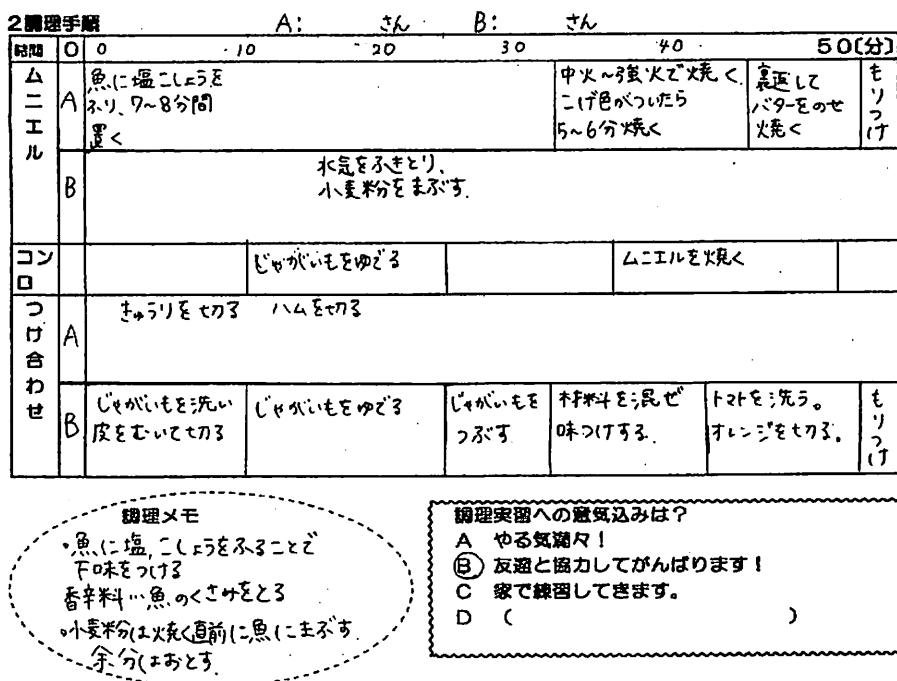 2調理手順 A: さん B: さん
時間 0 0 10 20 30 40 50(分)
ムニエル
A
魚に塩こしょうを
ふり、7〜8分間
置く
中火〜強火で焼く
こげ色がついたら
5〜6分焼く
裏返して
バターをのせ
焼く
もりつけ
B
水気をふきとり、
小麦粉をまぶす.
コンロ
じゃがいもをゆでる
ムニエルを焼く
つけ合わせ
A
きゅうりを切る ハムを切る
B
じゃがいもを洗い
皮をむいて切る
じゃがいもをゆでる
じゃがいもを
つぶす
材料を混ぜ
味つけする.
トマトを洗う。
オレンジを切る。
もりつけ
調理メモ
・魚に塩,こしょうをふることで
下味をつける
香辛料…魚のくさみをとる
・小麦粉は焼く直前に魚にまぶす.
余分はおとす.
調理実習への意気込みは?
A やる気満々!
B 友達と協力してがんばります!
C 家で練習してきます。
D ( )